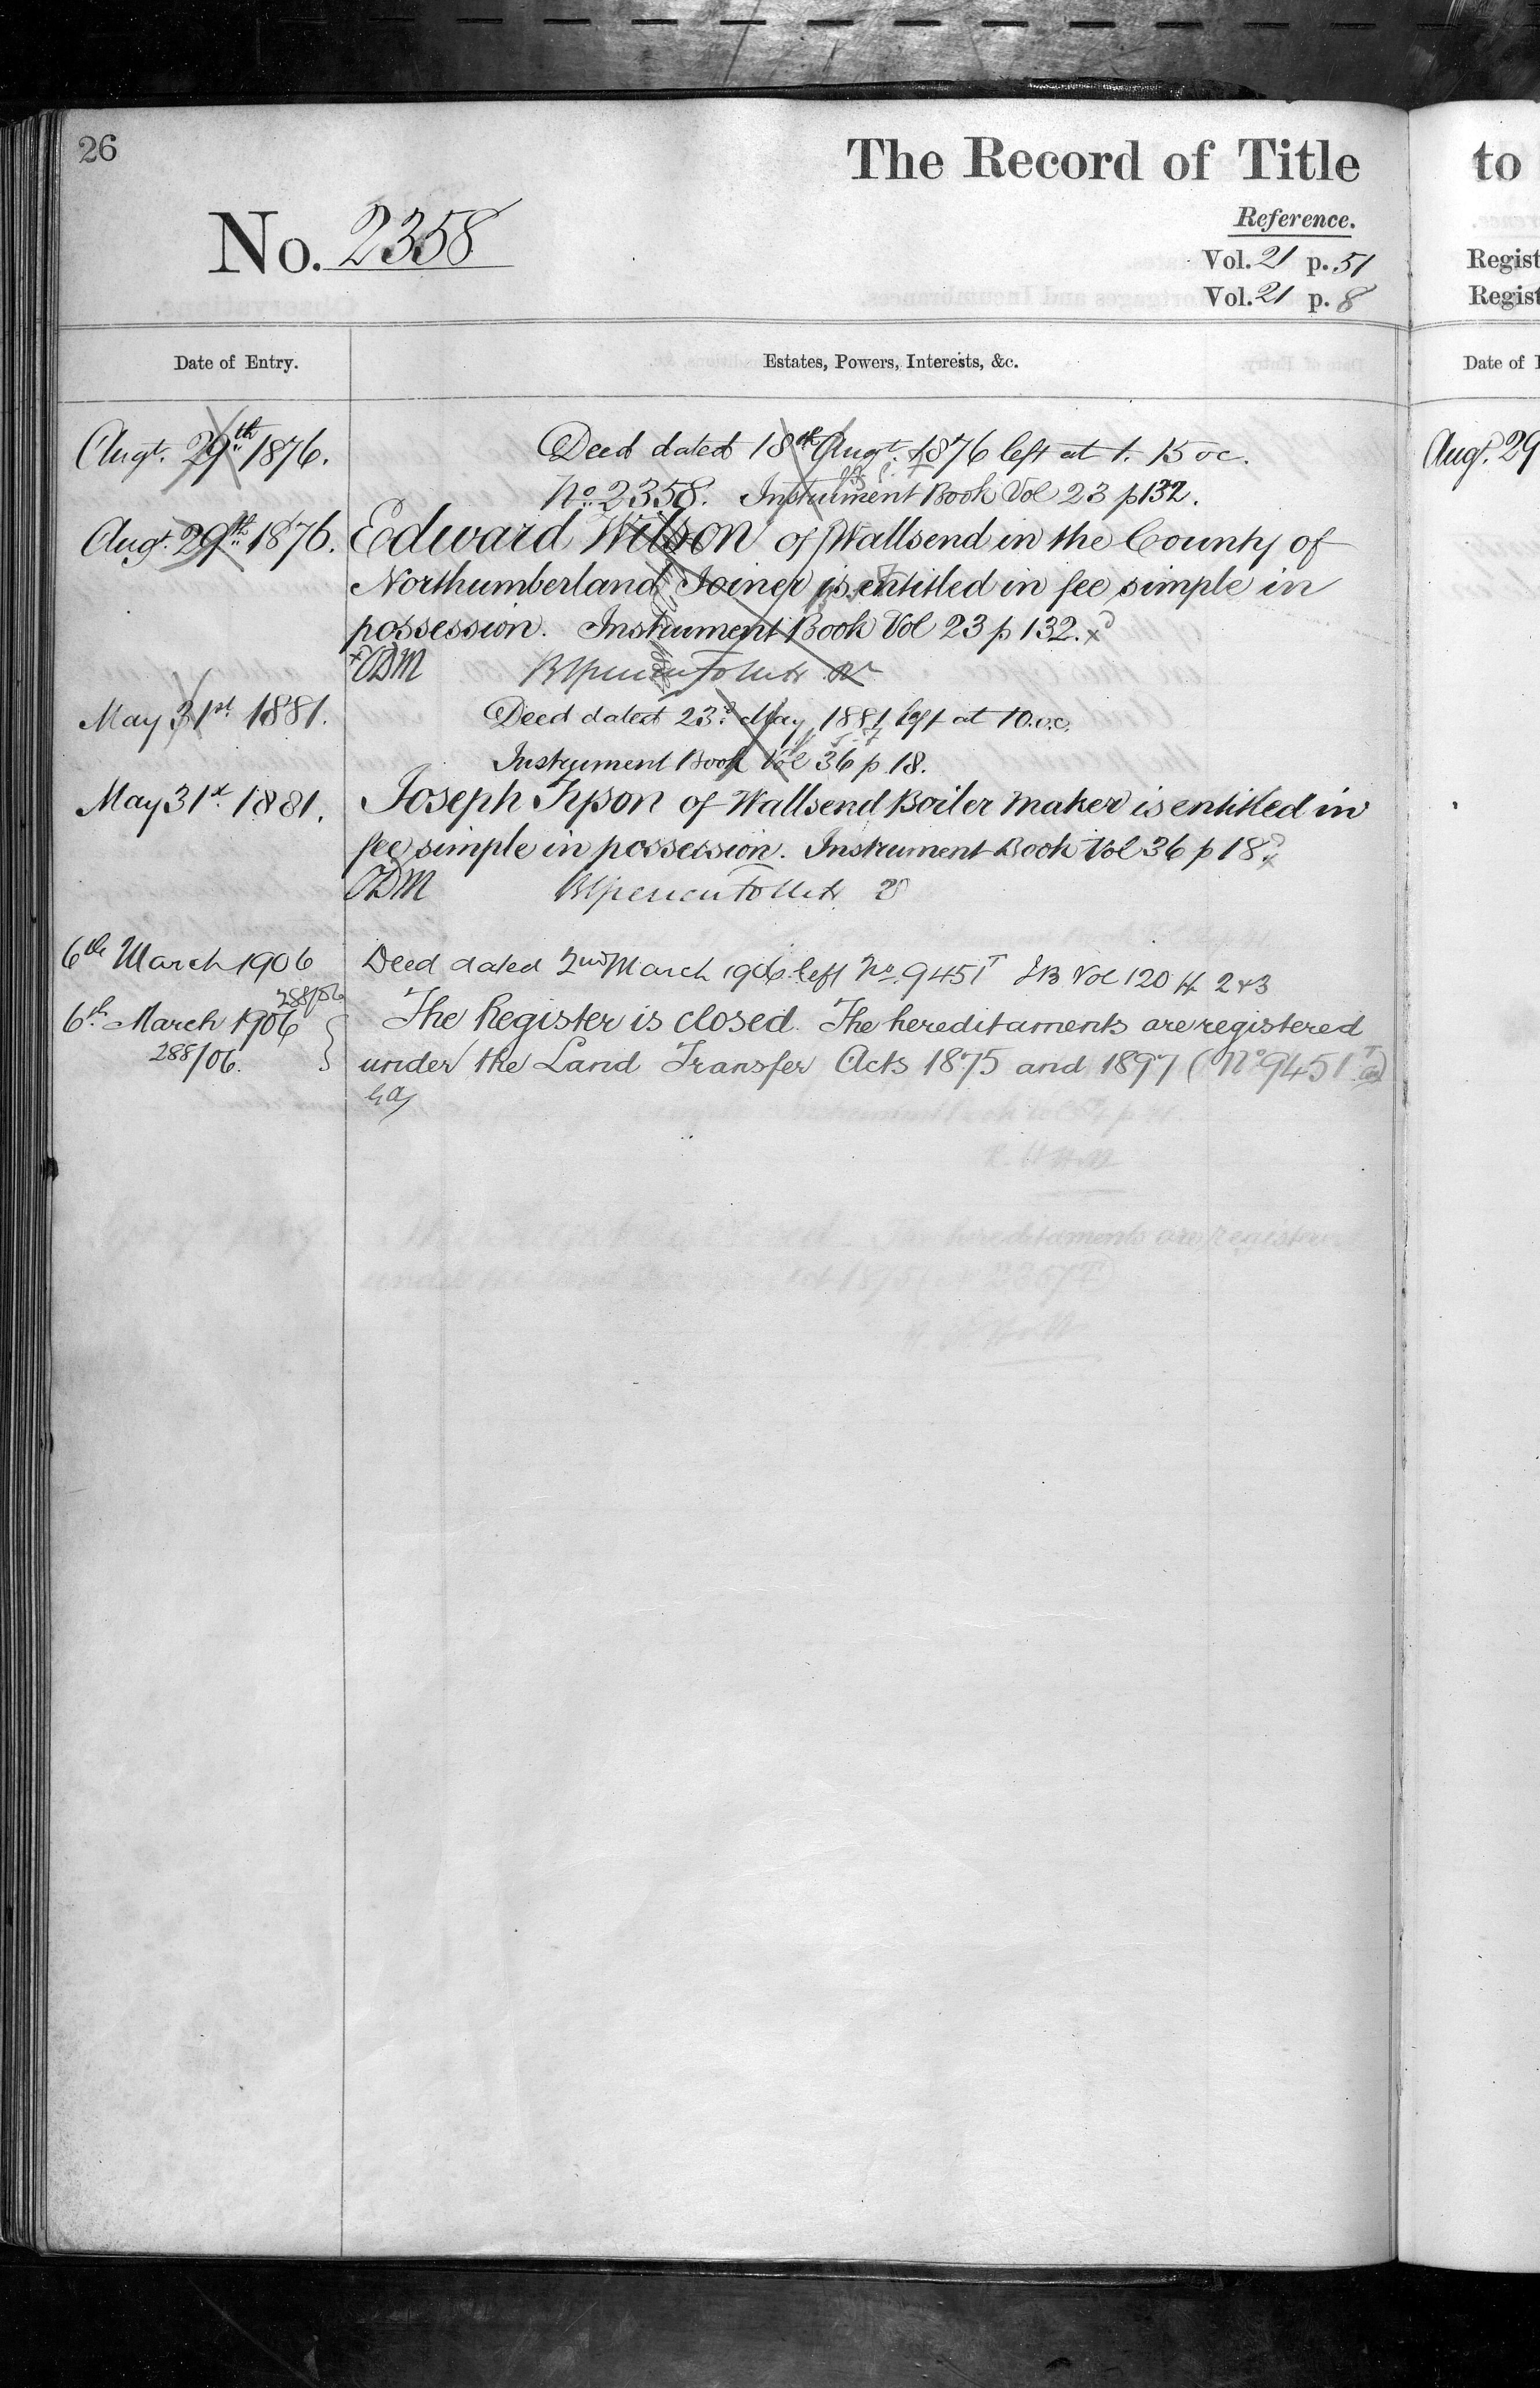 26
The Record of Title
to
No. 2358
Reference.
Vol. 21 p. 51
Regist
Vol. 21 p. 8
Regist
Date of Entry.
Estates, Powers, Interests, &c.
Date of
Augt. 29th 1876.
Deed dated 18th Augt. 1876 left at 1. 15 oc.
Augt. 29
No. 2358. Instrument Book Vol 23 p 132.
Augt. 29th 1876.
Edward Wilson of Wallsend in the County of
Northumberland Joiner is entitled in fee simple in
possession. Instrument Book Vol 23 p 132.
ODM
May 31st 1881.
Deed dated 23d May 1881 left at 10.o.c.
Instrument Book Vol 36 p 18.
May 31st 1881.
Joseph Tipson of Wallsend Boiler Maker is entitled in
fee simple in possession. Instrument Book Vol 36 p 18
ODM
6th March 1906
Deed dated 2nd March 1906 left No. 9451T IB Vol 120 ff 2 & 3
288/06
6th March 1906
The Register is closed. The hereditaments are registered
288/06.
under the Land Transfer Acts 1875 and 1897 (No 9451T)